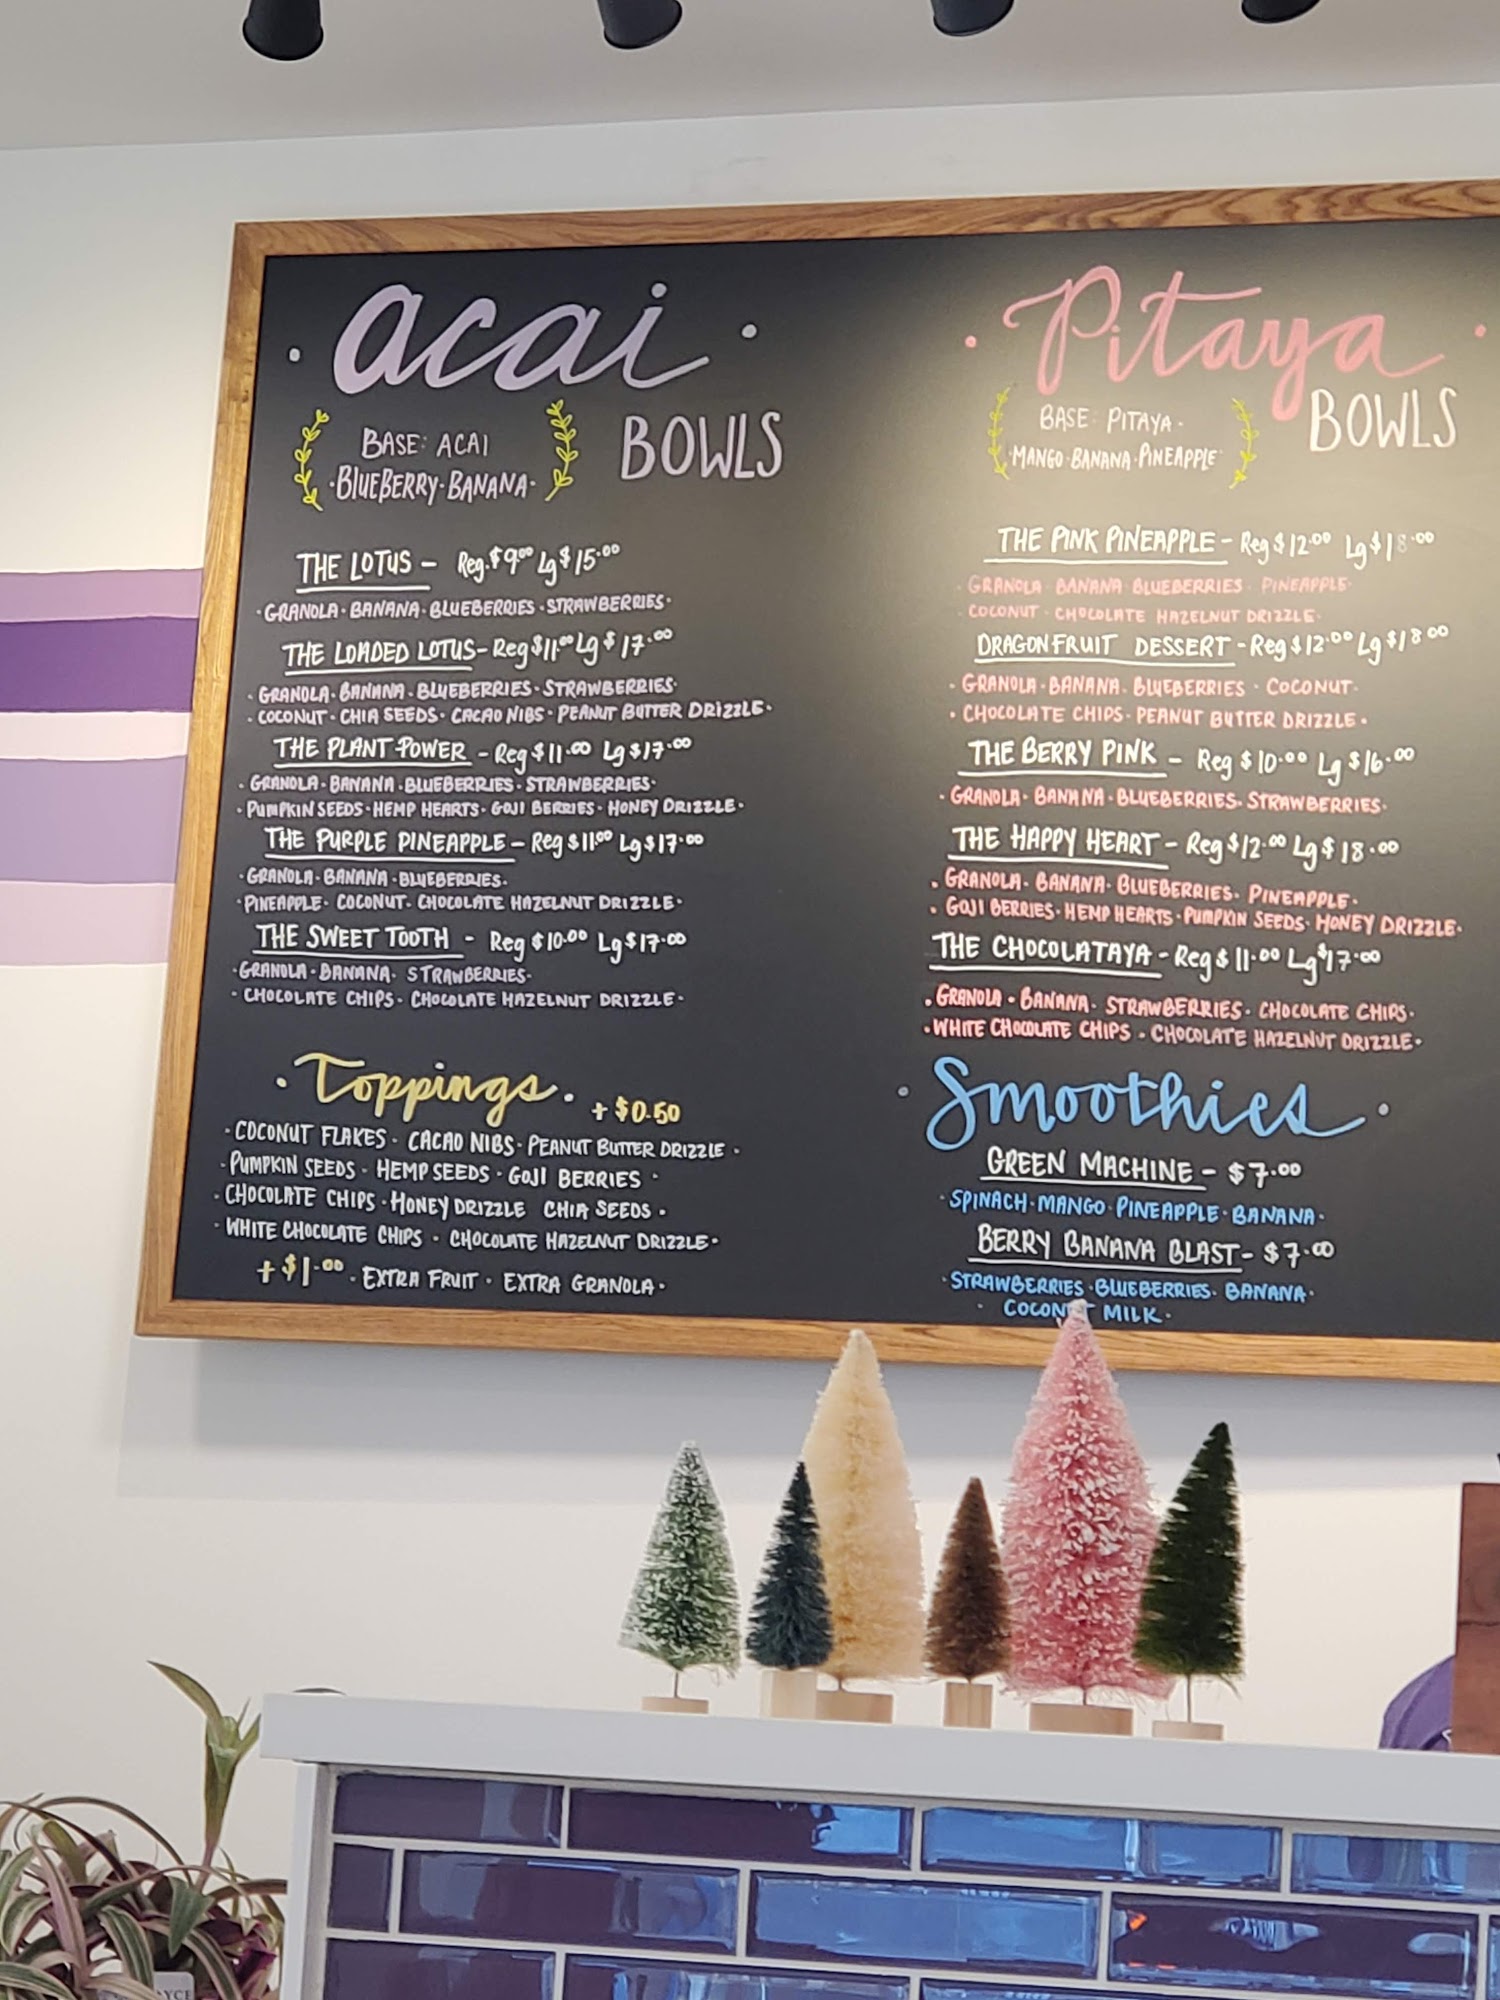 acai
BOWLS
BASE: ACAI
·BLUEBERRY·BANANA·
THE LOTUS - Reg.$9.00 Lg $15.00
·GRANOLA·BANANA·BLUEBERRIES·STRAWBERRIES·
THE LOADED LOTUS-Reg $11.00 Lg $17.00
·GRANOLA·BANANA·BLUEBERRIES·STRAWBERRIES·
·COCONUT·CHIA SEEDS·CACAO NIBS·PEANUT BUTTER DRIZZLE·
THE PLANT POWER - Reg $11.00 Lg $17.00
·GRANOLA·BANANA·BLUEBERRIES·STRAWBERRIES·
·PUMPKIN SEEDS·HEMP HEARTS·GOJI BERRIES·HONEY DRIZZLE·
THE PURPLE PINEAPPLE - Reg $11.00 Lg $17.00
·GRANOLA·BANANA·BLUEBERRIES·
·PINEAPPLE·COCONUT·CHOCOLATE HAZELNUT DRIZZLE·
THE SWEET TOOTH - Reg $10.00 Lg $17.00
·GRANOLA·BANANA·STRAWBERRIES·
·CHOCOLATE CHIPS·CHOCOLATE HAZELNUT DRIZZLE·
·Toppings· + $0.50
·COCONUT FLAKES·CACAO NIBS·PEANUT BUTTER DRIZZLE·
·PUMPKIN SEEDS·HEMP SEEDS·GOJI BERRIES·
·CHOCOLATE CHIPS·HONEY DRIZZLE CHIA SEEDS·
·WHITE CHOCOLATE CHIPS·CHOCOLATE HAZELNUT DRIZZLE·
+ $1.00·EXTRA FRUIT·EXTRA GRANOLA·
Pitaya
BOWLS
BASE: PITAYA·
·MANGO·BANANA·PINEAPPLE·
THE PINK PINEAPPLE - Reg $12.00 Lg $18.00
·GRANOLA·BANANA·BLUEBERRIES·PINEAPPLE·
·COCONUT·CHOCOLATE HAZELNUT DRIZZLE·
DRAGONFRUIT DESSERT - Reg $12.00 Lg $18.00
·GRANOLA·BANANA·BLUEBERRIES·COCONUT·
·CHOCOLATE CHIPS·PEANUT BUTTER DRIZZLE·
THE BERRY PINK - Reg $10.00 Lg $16.00
·GRANOLA·BANANA·BLUEBERRIES·STRAWBERRIES·
THE HAPPY HEART - Reg $12.00 Lg $18.00
·GRANOLA·BANANA·BLUEBERRIES·PINEAPPLE·
·GOJI BERRIES·HEMP HEARTS·PUMPKIN SEEDS·HONEY DRIZZLE·
THE CHOCOLATAYA - Reg $11.00 Lg $17.00
·GRANOLA·BANANA·STRAWBERRIES·CHOCOLATE CHIPS·
·WHITE CHOCOLATE CHIPS·CHOCOLATE HAZELNUT DRIZZLE·
·Smoothies·
GREEN MACHINE - $7.00
·SPINACH·MANGO·PINEAPPLE·BANANA·
BERRY BANANA BLAST - $7.00
·STRAWBERRIES·BLUEBERRIES·BANANA·
·COCONUT MILK·